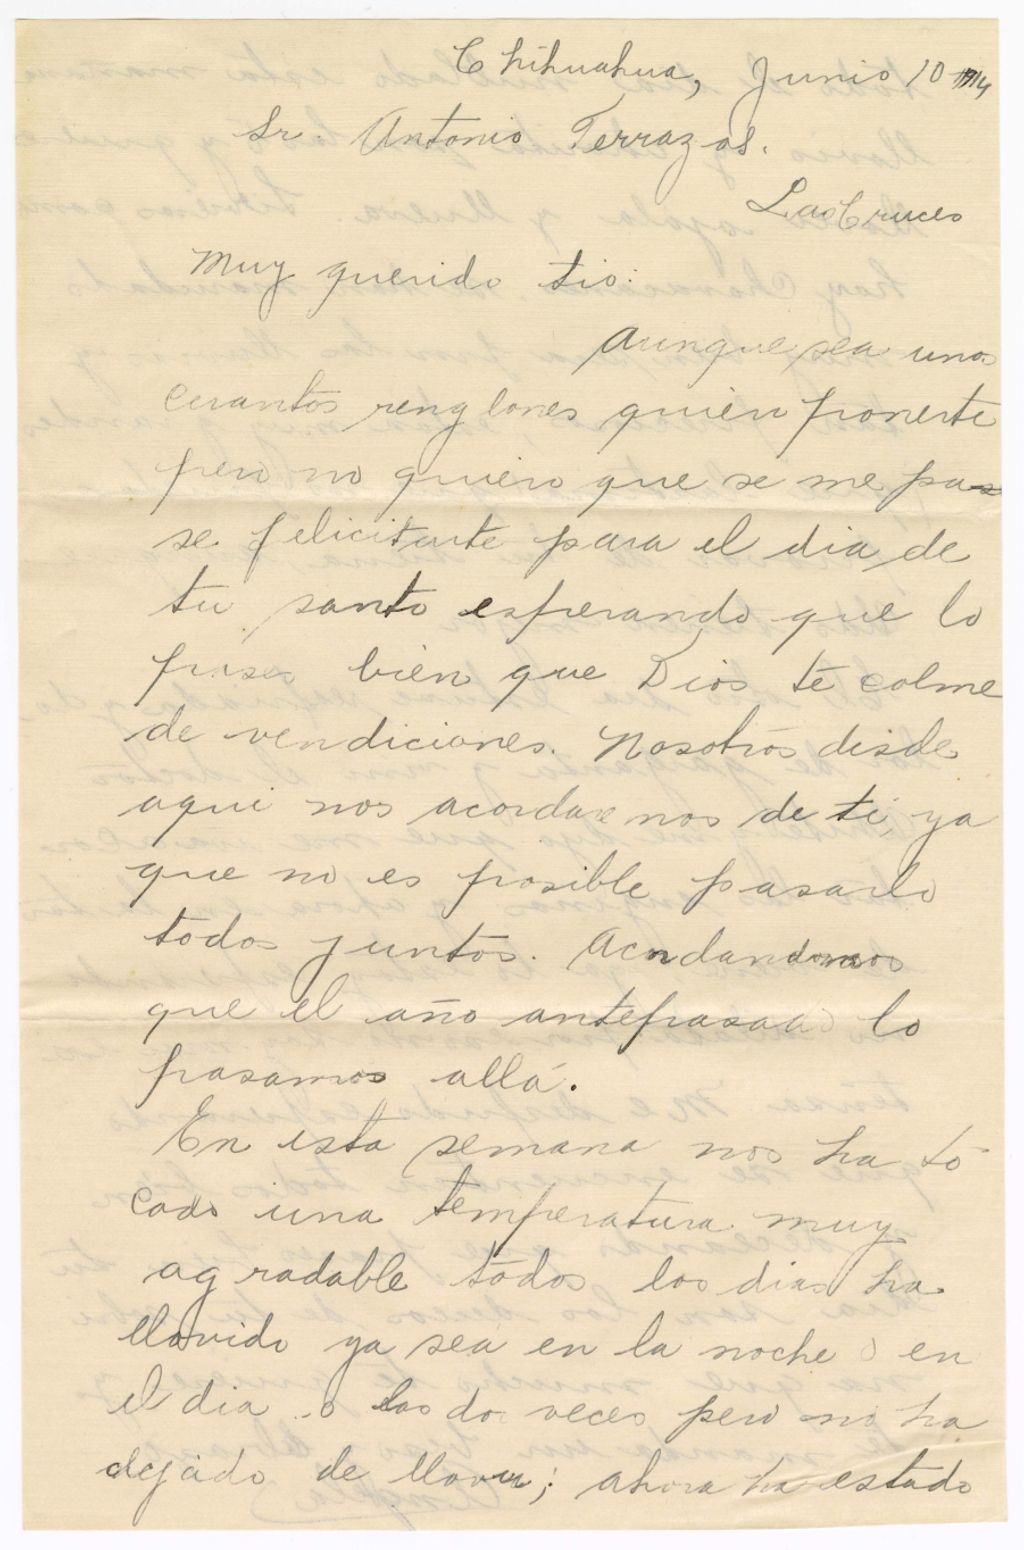 Chihuahua, Junio 10 1914
Sr. Antonio Terrazas.
Las Cruces
Muy querido tio:
Aunque sea unos
cuantos renglones quiero ponerte
pero no quiero que se me pa
se felicitarte para el dia de
tu santo esperando que lo
pases bien que Dios te colme
de vendiciones. Nosotros desde
aqui nos acordaremos de ti, ya
que no es posible pasarlo
todos juntos. Acordandonos
que el año antepasado lo
pasamos allá.
En esta semana nos ha to
cado una temperatura muy
agradable todos los dias ha
llovido ya sea en la noche o en
el dia o las dos veces pero no ha
dejado de llover; ahora ha estado